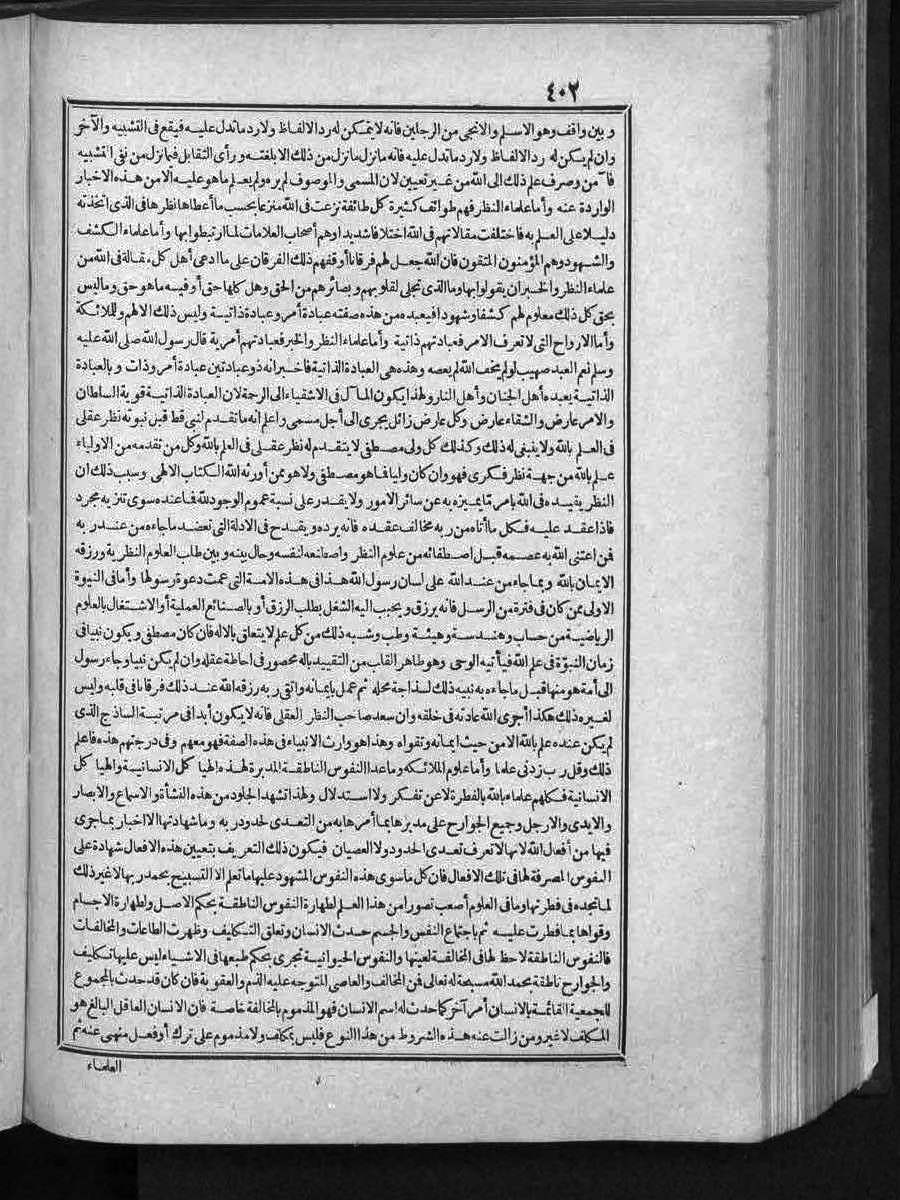 ٤٠٢
وبين واقف وهو الاسلم والانجى من الرجلين فانه لا يتمكن له رد الالفاظ ولا رد ما تدل عليه فيقع فى التشبيه والآخر
وان لم يمكن له رد الالفاظ ولا رد ما تدل عليه فانه ما نزل ما نزل من ذلك الا بلغته ورأى التقابل فيما نزل من نفى التشبيه
فآمن وصرف علم ذلك الى الله من غير تعيين لان المسمى والموصوف لم يره ولم يعلم ما هو عليه الا من هذه الاخبار
الواردة عنه وأما علماء النظر فهم طوائف كثيرة كل طائفة نزعت فى الله منزعا بحسب ما أعطاها نظرها فى الذى اتخذته
دليلا على العلم به فاختلفت مقالاتهم فى الله اختلافا شديدا وهم أصحاب العلامات لما ارتبطوا بها وأما علماء الكشف
والشهود وهم المؤمنون المتقون فان الله جعل لهم فرقانا أوقفهم ذلك الفرقان على ما ادعى أهل كل مقالة فى الله من
علماء النظر والخبر ان يقولوا بها وما الذى تجلى لقلوبهم وبصائرهم من الحق وهل كلها حق أو فيه ما هو حق وما ليس
بحق كل ذلك معلوم لهم كشفا وشهودا فيعبده من هذه صفته عبادة أمر وعبادة ذاتية وليس ذلك الا لهم وللملائكة
وأما الارواح التى لا تعرف الامر فعبادتهم ذاتية وأما علماء النظر والخبر فعبادتهم أمرية قال رسول الله صلى الله عليه
وسلم نعم العبد صهيب لو لم يخف الله لم يعصه وهذه هى العبادة الذاتية فاخبر انه ذو عبادتين عبادة أمر وذات وبالعبادة
الذاتية يعبده أهل الجنان وأهل النار ولهذا يكون المآل فى الاشقياء الى الرحمة لان العبادة الذاتية قوية السلطان
والامر عارض والشقاء عارض وكل عارض زائل يجرى الى أجل مسمى واعلم انه ما تقدم لنبى قط قبل نبوته نظر عقلى
فى العلم بالله ولا ينبغى له ذلك وكذلك كل ولى مصطفى لا يتقدم له نظر عقلى فى العلم بالله وكل من تقدمه من الاولياء
علم بالله من جهة نظر فكرى فهو وان كان وليا فما هو مصطفى ولا هو ممن أورثه الله الكتاب الالهى وسبب ذلك ان
النظر يقيده فى الله بامر ما يميزه به عن سائر الامور ولا يقدر على نسبة عموم الوجود لله فما عنده سوى تنزيه مجرد
فاذا عقد عليه فكل ما أتاه من ربه مخالف عقده فانه يرده ويقدح فى الادلة التى تعضد ما جاءه من عند ربه
فمن اعتنى الله به عصمه قبل اصطفائه من علوم النظر واصطنعه لنفسه وحال بينه وبين طلب العلوم النظرية ورزقه
الايمان بالله وبما جاء من عند الله على لسان رسول الله هذا فى هذه الامة التى عمت دعوة رسولها وأما فى النبوة
الاولى ممن كان فى فترة من الرسل فانه يرزق ويحبب اليه الشغل بطلب الرزق أو بالصنائع العملية أو الاشتغال بالعلوم
الرياضية من حساب وهندسة وهيئة وطب وشبه ذلك من كل علم لا يتعلق بالاله فان كان مصطفى ويكون نبيا فى
زمان النبوّة فى علم الله فيأتيه الوحى وهو طاهر القلب من التقييد باله محصور فى احاطة عقله وان لم يكن نبيا وجاء رسول
الى أمة هو منها قبل ما جاءه به نبيه ذلك لسذاجة محله ثم عمل بايمانه واتقى ربه رزقه الله عند ذلك فرقانا فى قلبه وليس
لغيره ذلك هكذا أجرى الله عادته فى خلقه وان سعد صاحب النظر العقلى فانه لا يكون أبدا فى مرتبة الساذج الذى
لم يكن عنده علم بالله الا من حيث ايمانه وتقواه وهذا هو وارث الانبياء فى هذه الصفة فهو معهم وفى درجتهم هذه فاعلم
ذلك وقل رب زدنى علما وأما علوم الملائكة وما عدا النفوس الناطقة المدبرة لهذه الهياكل الانسانية والهياكل
الانسانية فكلهم علماء بالله بالفطرة لا عن تفكر ولا استدلال ولهذا تشهد الجلود من هذه النشأة والاسماع والأبصار
والايدى والارجل وجميع الجوارح على مدبرها بما أمرها به من التعدى لحدود ربه وما شهادتها الا اخبار بما جرى
فيها من أفعال الله لانها لا تعرف تعدى الحدود ولا العصيان فيكون ذلك التعريف بتعيين هذه الافعال شهادة على
النفوس المصرفة لها فى تلك الافعال فان كل ما سوى هذه النفوس المشهود عليها ما تعلم الا التسبيح بحمد ربها لا غير ذلك
لما تجده فى فطرتها وما فى العلوم أصعب تصورا من هذا العلم لطهارة النفوس الناطقة بحكم الاصل ولطهارة الاجسام
وقواها بما فطرت عليه ثم باجتماع النفس والجسم حدث الانسان وتعلق التكليف وظهرت الطاعات والمخالفات
فالنفوس الناطقة لا حظ لها فى المخالفة لعينها والنفوس الحيوانية تجرى بحكم طبعها فى الاشياء ليس عليها تكليف
والجوارح ناطقة بحمد الله مسبحة له تعالى فمن المخالف والعاصى المتوجه عليه الذم والعقوبة فان كان قد حدث بالمجموع
للجمعية القائمة بالانسان أمر آخر كما حدث له اسم الانسان فهو المذموم بالمخالفة خاصة فان الانسان العاقل البالغ هو
المكلف لا غير ومن زالت عنه هذه الشروط من هذا النوع فليس بمكلف ولا مذموم على ترك أو فعل منهى عنه ثم
العلماء